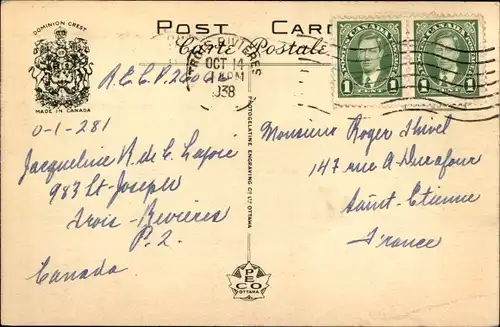 DOMINION CREST
MADE IN CANADA
POST CARD
Carte Postale
TROIS RIVIERES
OCT 14
PM
1938
CANADA
1 1
CANADA
1 1
0-1-281
Jacqueline R. de C. Lajoie
983 St-Joseph
Trois-Rivières
P. 2.
Canada
PHOTOGELATINE ENGRAVING CO. LTD. OTTAWA
PECO
OTTAWA
Monsieur Roger Thivel
147 rue A. Durafour
Saint-Etienne
France